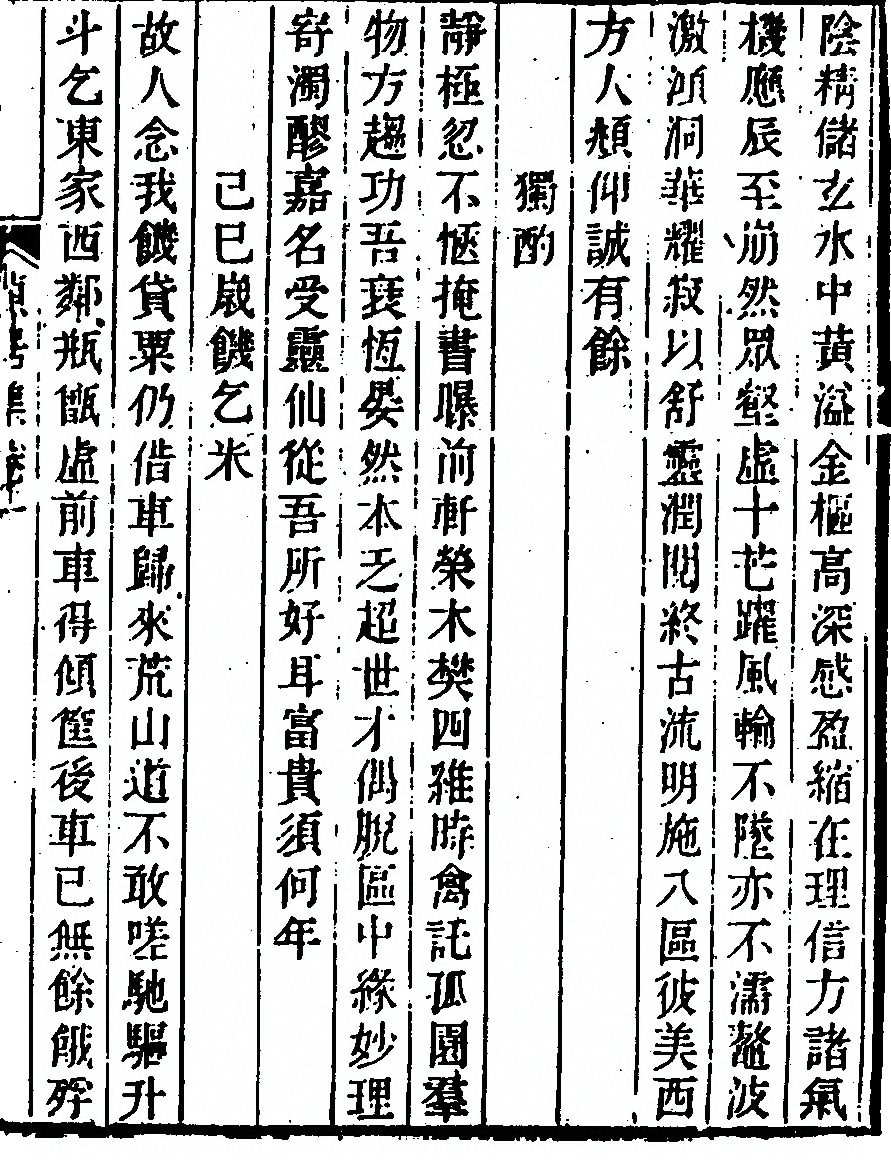 陰精儲玄水中黃溢金樞高深感盈縮在理信力諸氣
機應辰至崩然眾壑虛十芒躍風輪不墜亦不濡鼇波
激澒洞華耀寂以舒靈潤閟終古流明施八區彼美西
方人頫仰誠有餘
獨酌
靜極忽不愜掩書曝前軒榮木樊四維時禽託孤園羣
物方趨功吾衰恆晏然本乏超世才偶脫區中緣妙理
寄濁醪嘉名受靈仙從吾所好耳富貴須何年
己巳歲饑乞米
故人念我饑貸粟仍借車歸來荒山道不敢嗟馳驅升
斗乞東家西鄰瓶甑虛前車得傾筐後車已無餘餓殍
集卷十一